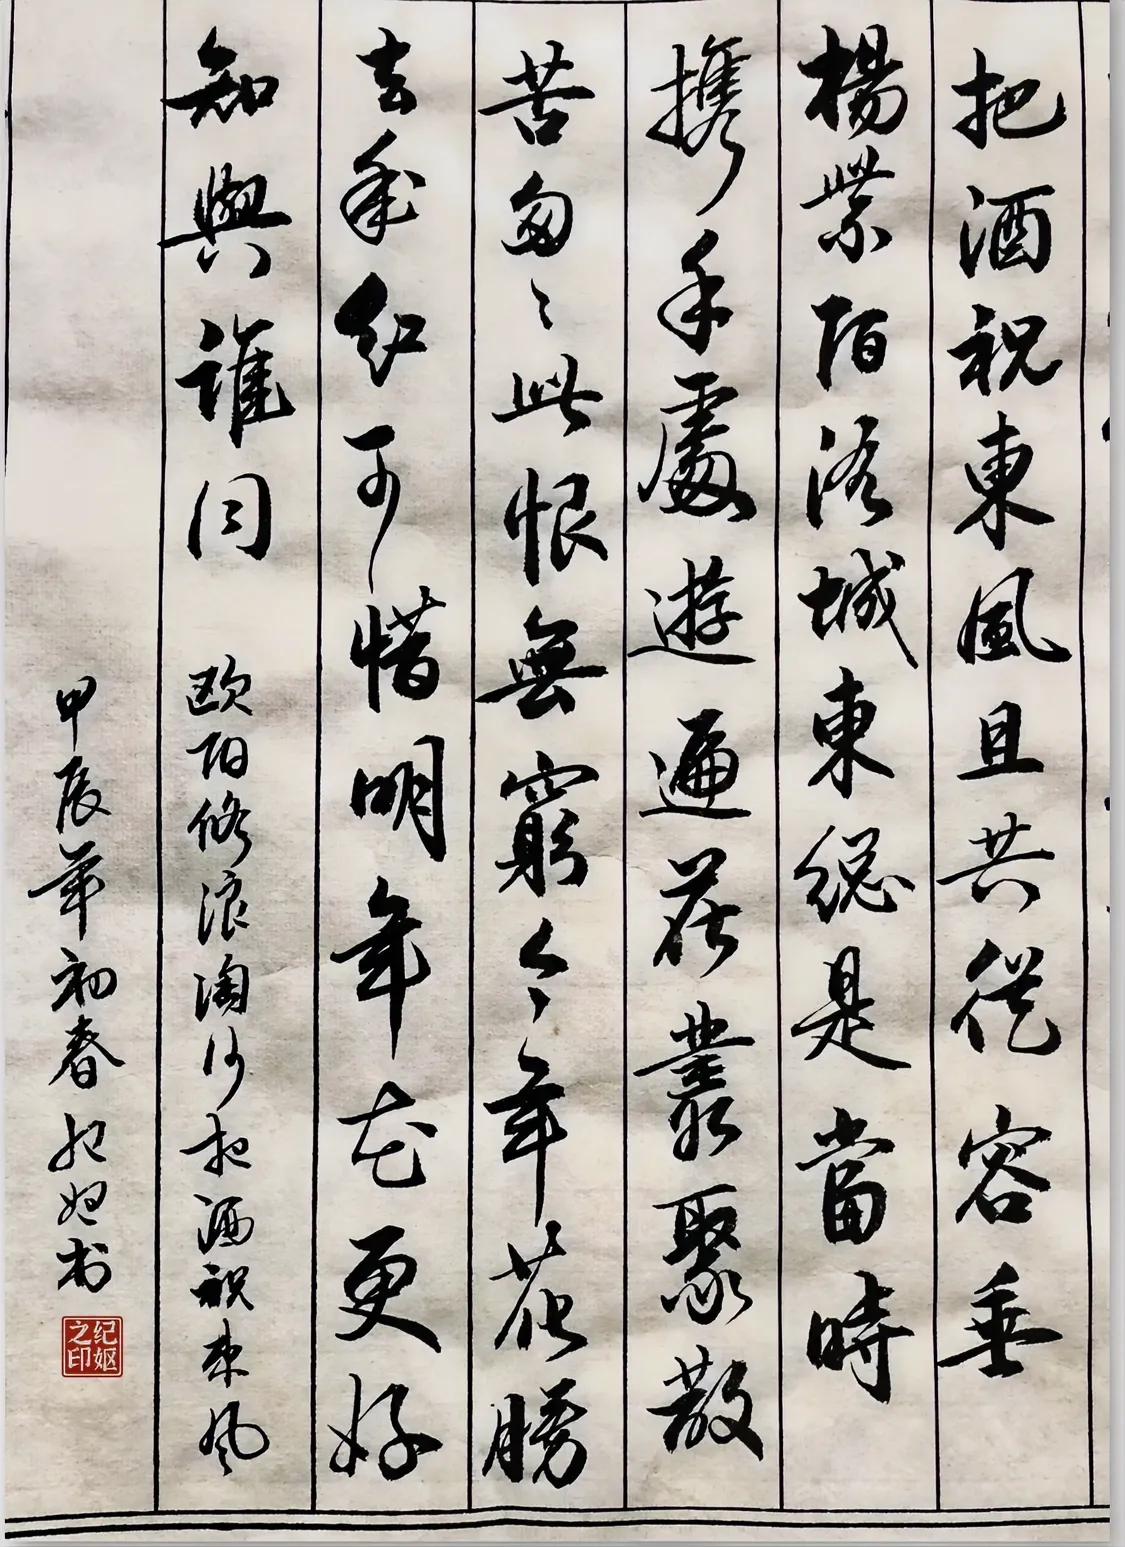 把酒祝東風且共從容垂
楊紫陌洛城東總是當時
携手處遊遍芳叢聚散
苦匆々此恨無窮今年花勝
去年红可惜明年花更好
知與誰同 欧阳修浪淘沙把酒祝東风
甲辰年初春纪妪书
纪妪之印